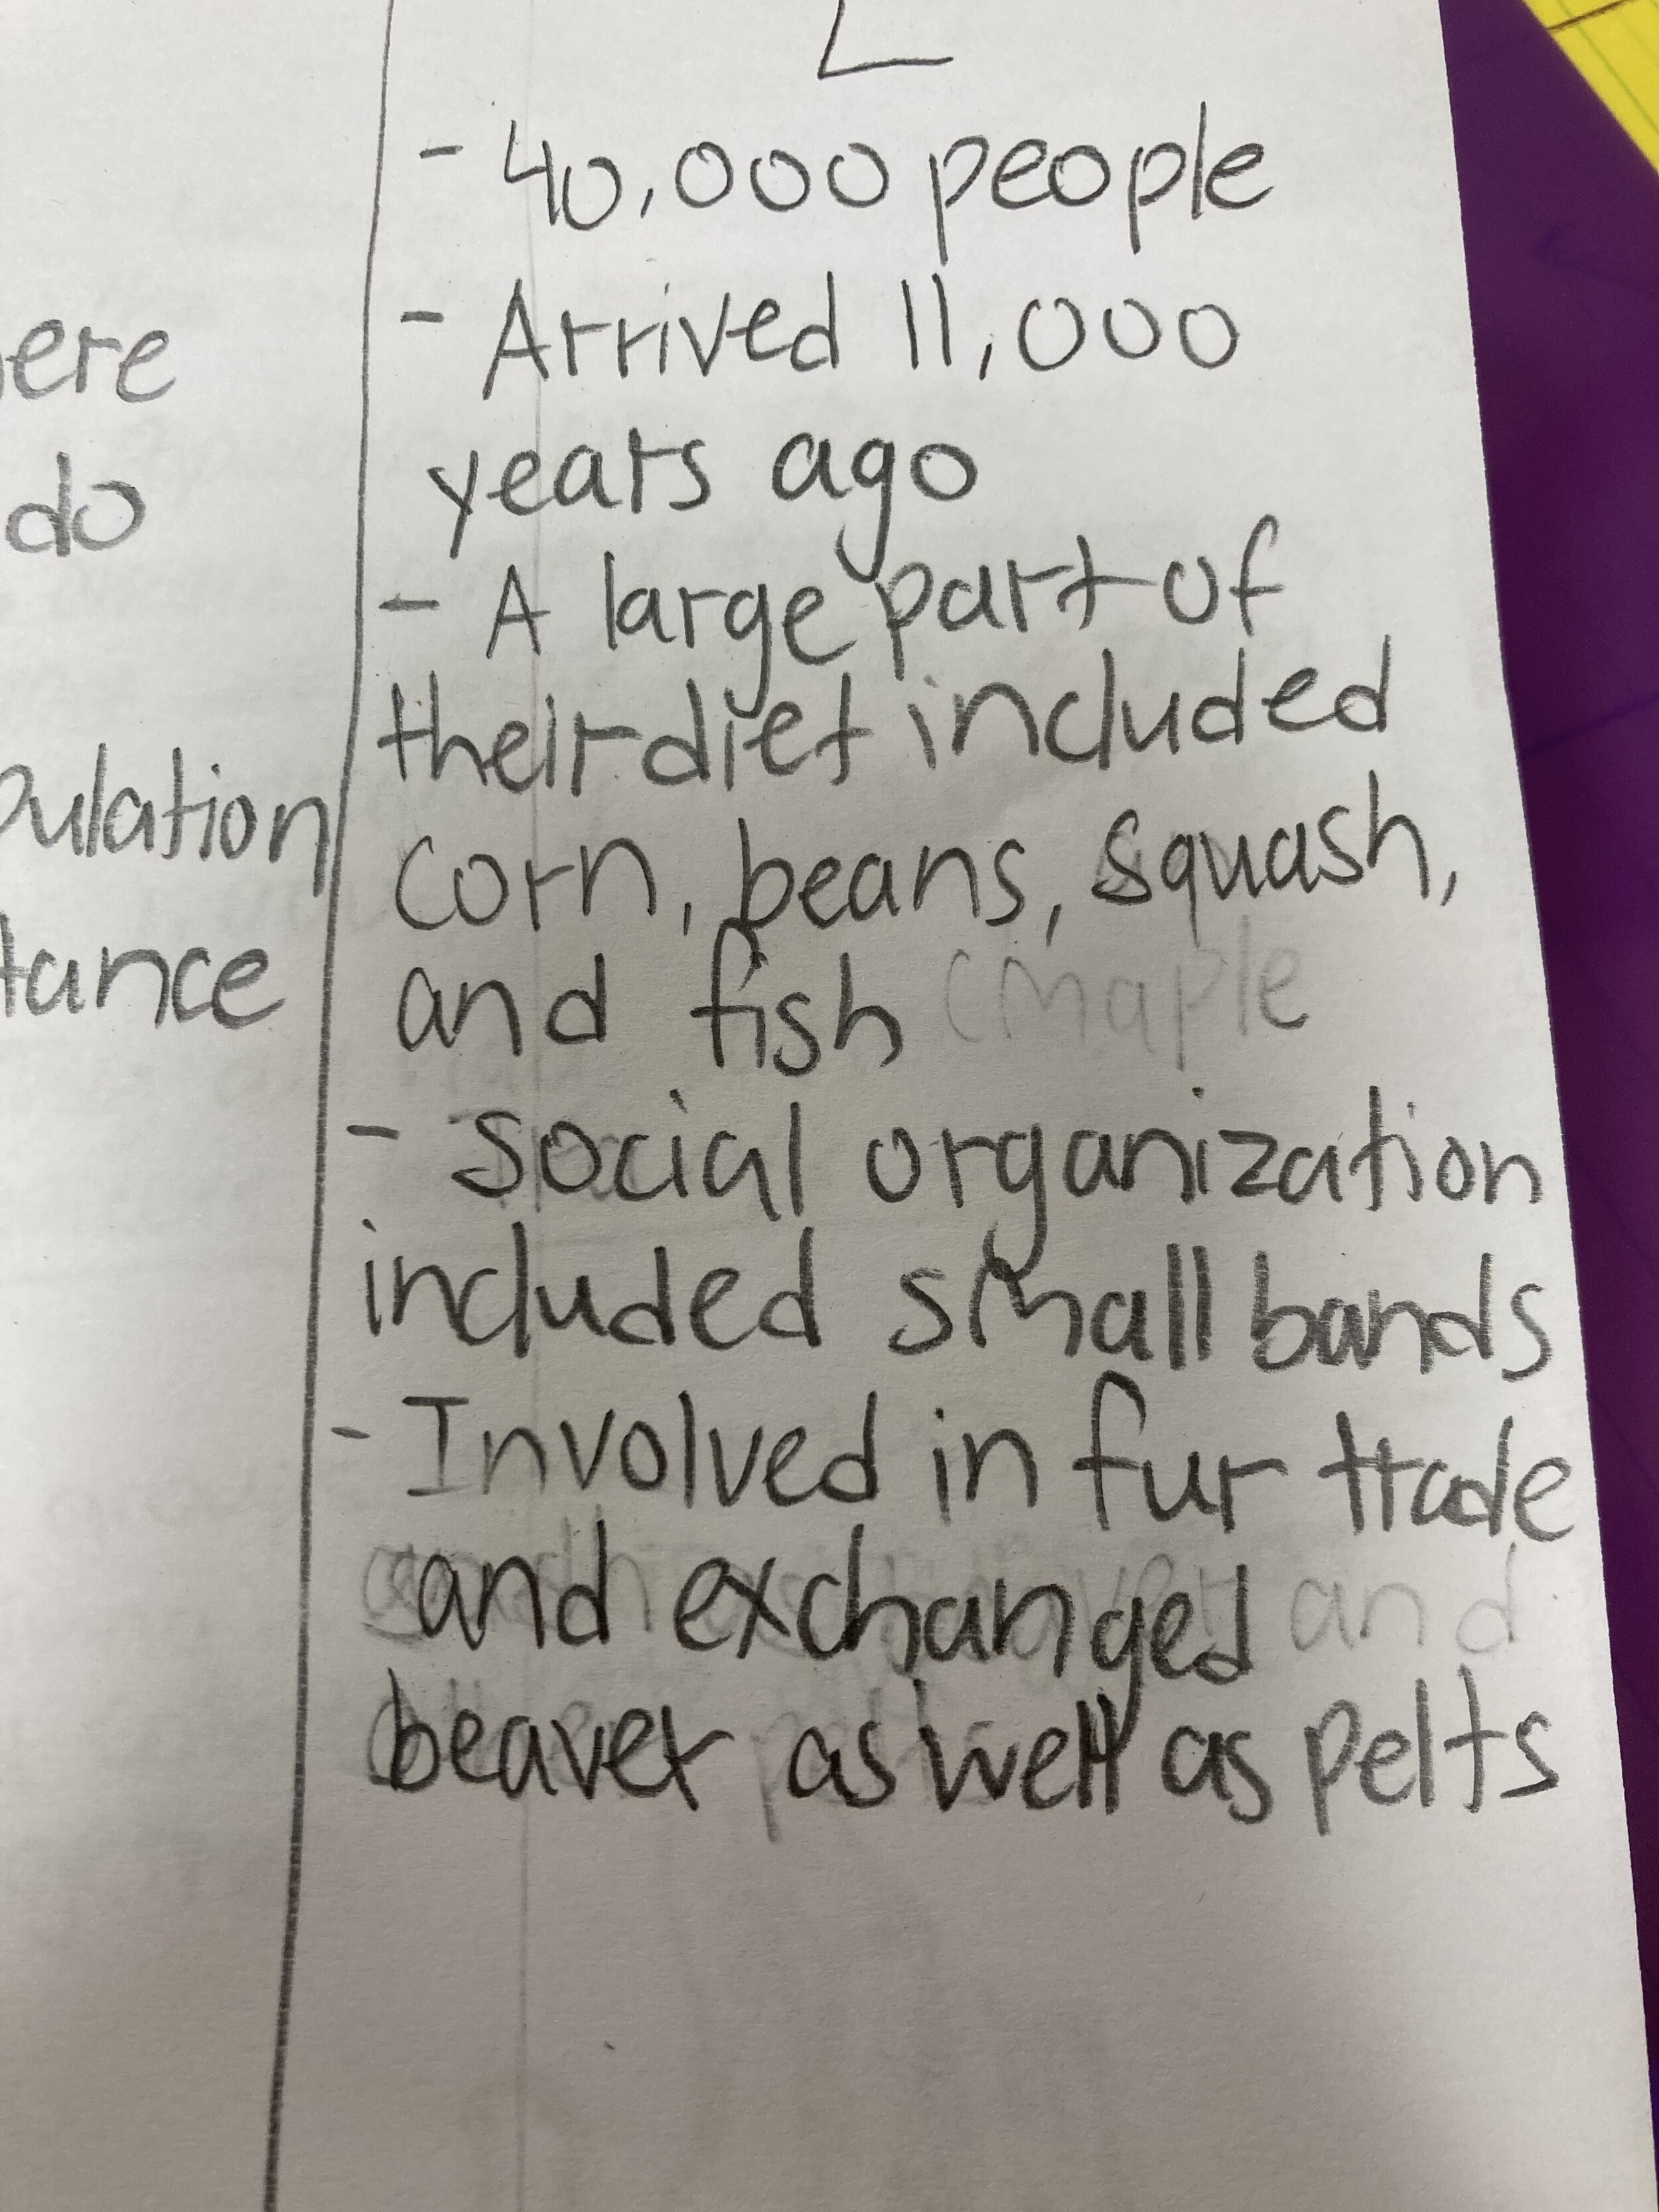 L
- 40,000 people
- Arrived 11,000
years ago
- A large part of
their diet included
corn, beans, squash,
and fish (maple
- Social organization
included small bands
- Involved in fur trade
and exchanged and
beaver as well as pelts
ere
do
pulation
tance